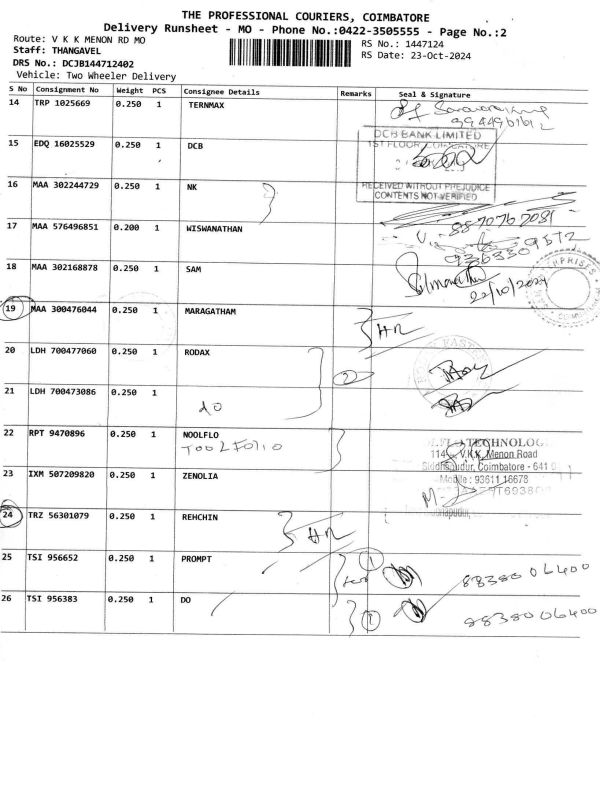 THE PROFESSIONAL COURIERS, COIMBATORE
Delivery Runsheet - MO - Phone No.:0422-3505555 - Page No.:2
Route: V K K MENON RD MO
Staff: THANGAVEL
DRS No.: DCJB144712402
Vehicle: Two Wheeler Delivery
RS No.: 1447124
RS Date: 23-Oct-2024
S No Consignment No Weight PCS Consignee Details Remarks Seal & Signature
14 TRP 1025669 0.250 1 TERNMAX
DCB BANK LIMITED
15 EDQ 16025529 0.250 1 DCB
16 MAA 302244729 0.250 1 NK
RECEIVED WITHOUT PREJUDICE
CONTENTS NOT VERIFIED
17 MAA 576496851 0.200 1 WISWANATHAN
18 MAA 302168878 0.250 1 SAM
22/10/2024
19 MAA 300476044 0.250 1 MARAGATHAM
20 LDH 700477060 0.250 1 RODAX
2
21 LDH 700473086 0.250 1
do
22 RPT 9470896 0.250 1 NOOLFLO
TOOLFOLIO
TECHNOLOG
114 V.K.K. Menon Road
Siddhapudur, Coimbatore - 641
Mobile : 93611 16678
23 IXM 507209820 0.250 1 ZENOLIA
24 TRZ 56301079 0.250 1 REHCHIN
25 TSI 956652 0.250 1 PROMPT
1
88380 06400
26 TSI 956383 0.250 1 DO
88380 06400